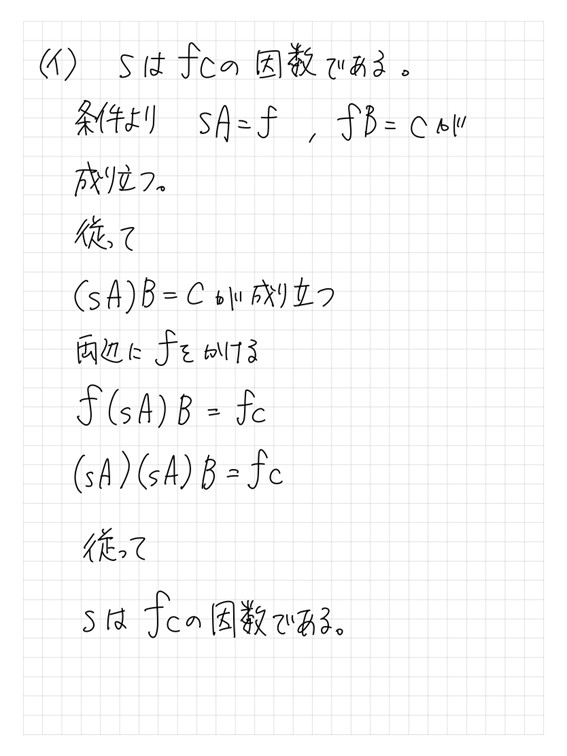 (イ) sはfcの因数である。
条件より sA=f , fB=cが
成り立つ。
従って
(sA)B=cが成り立つ
両辺にfをかける
f(sA)B=fc
(sA)(sA)B=fc
従って
sはfcの因数である。